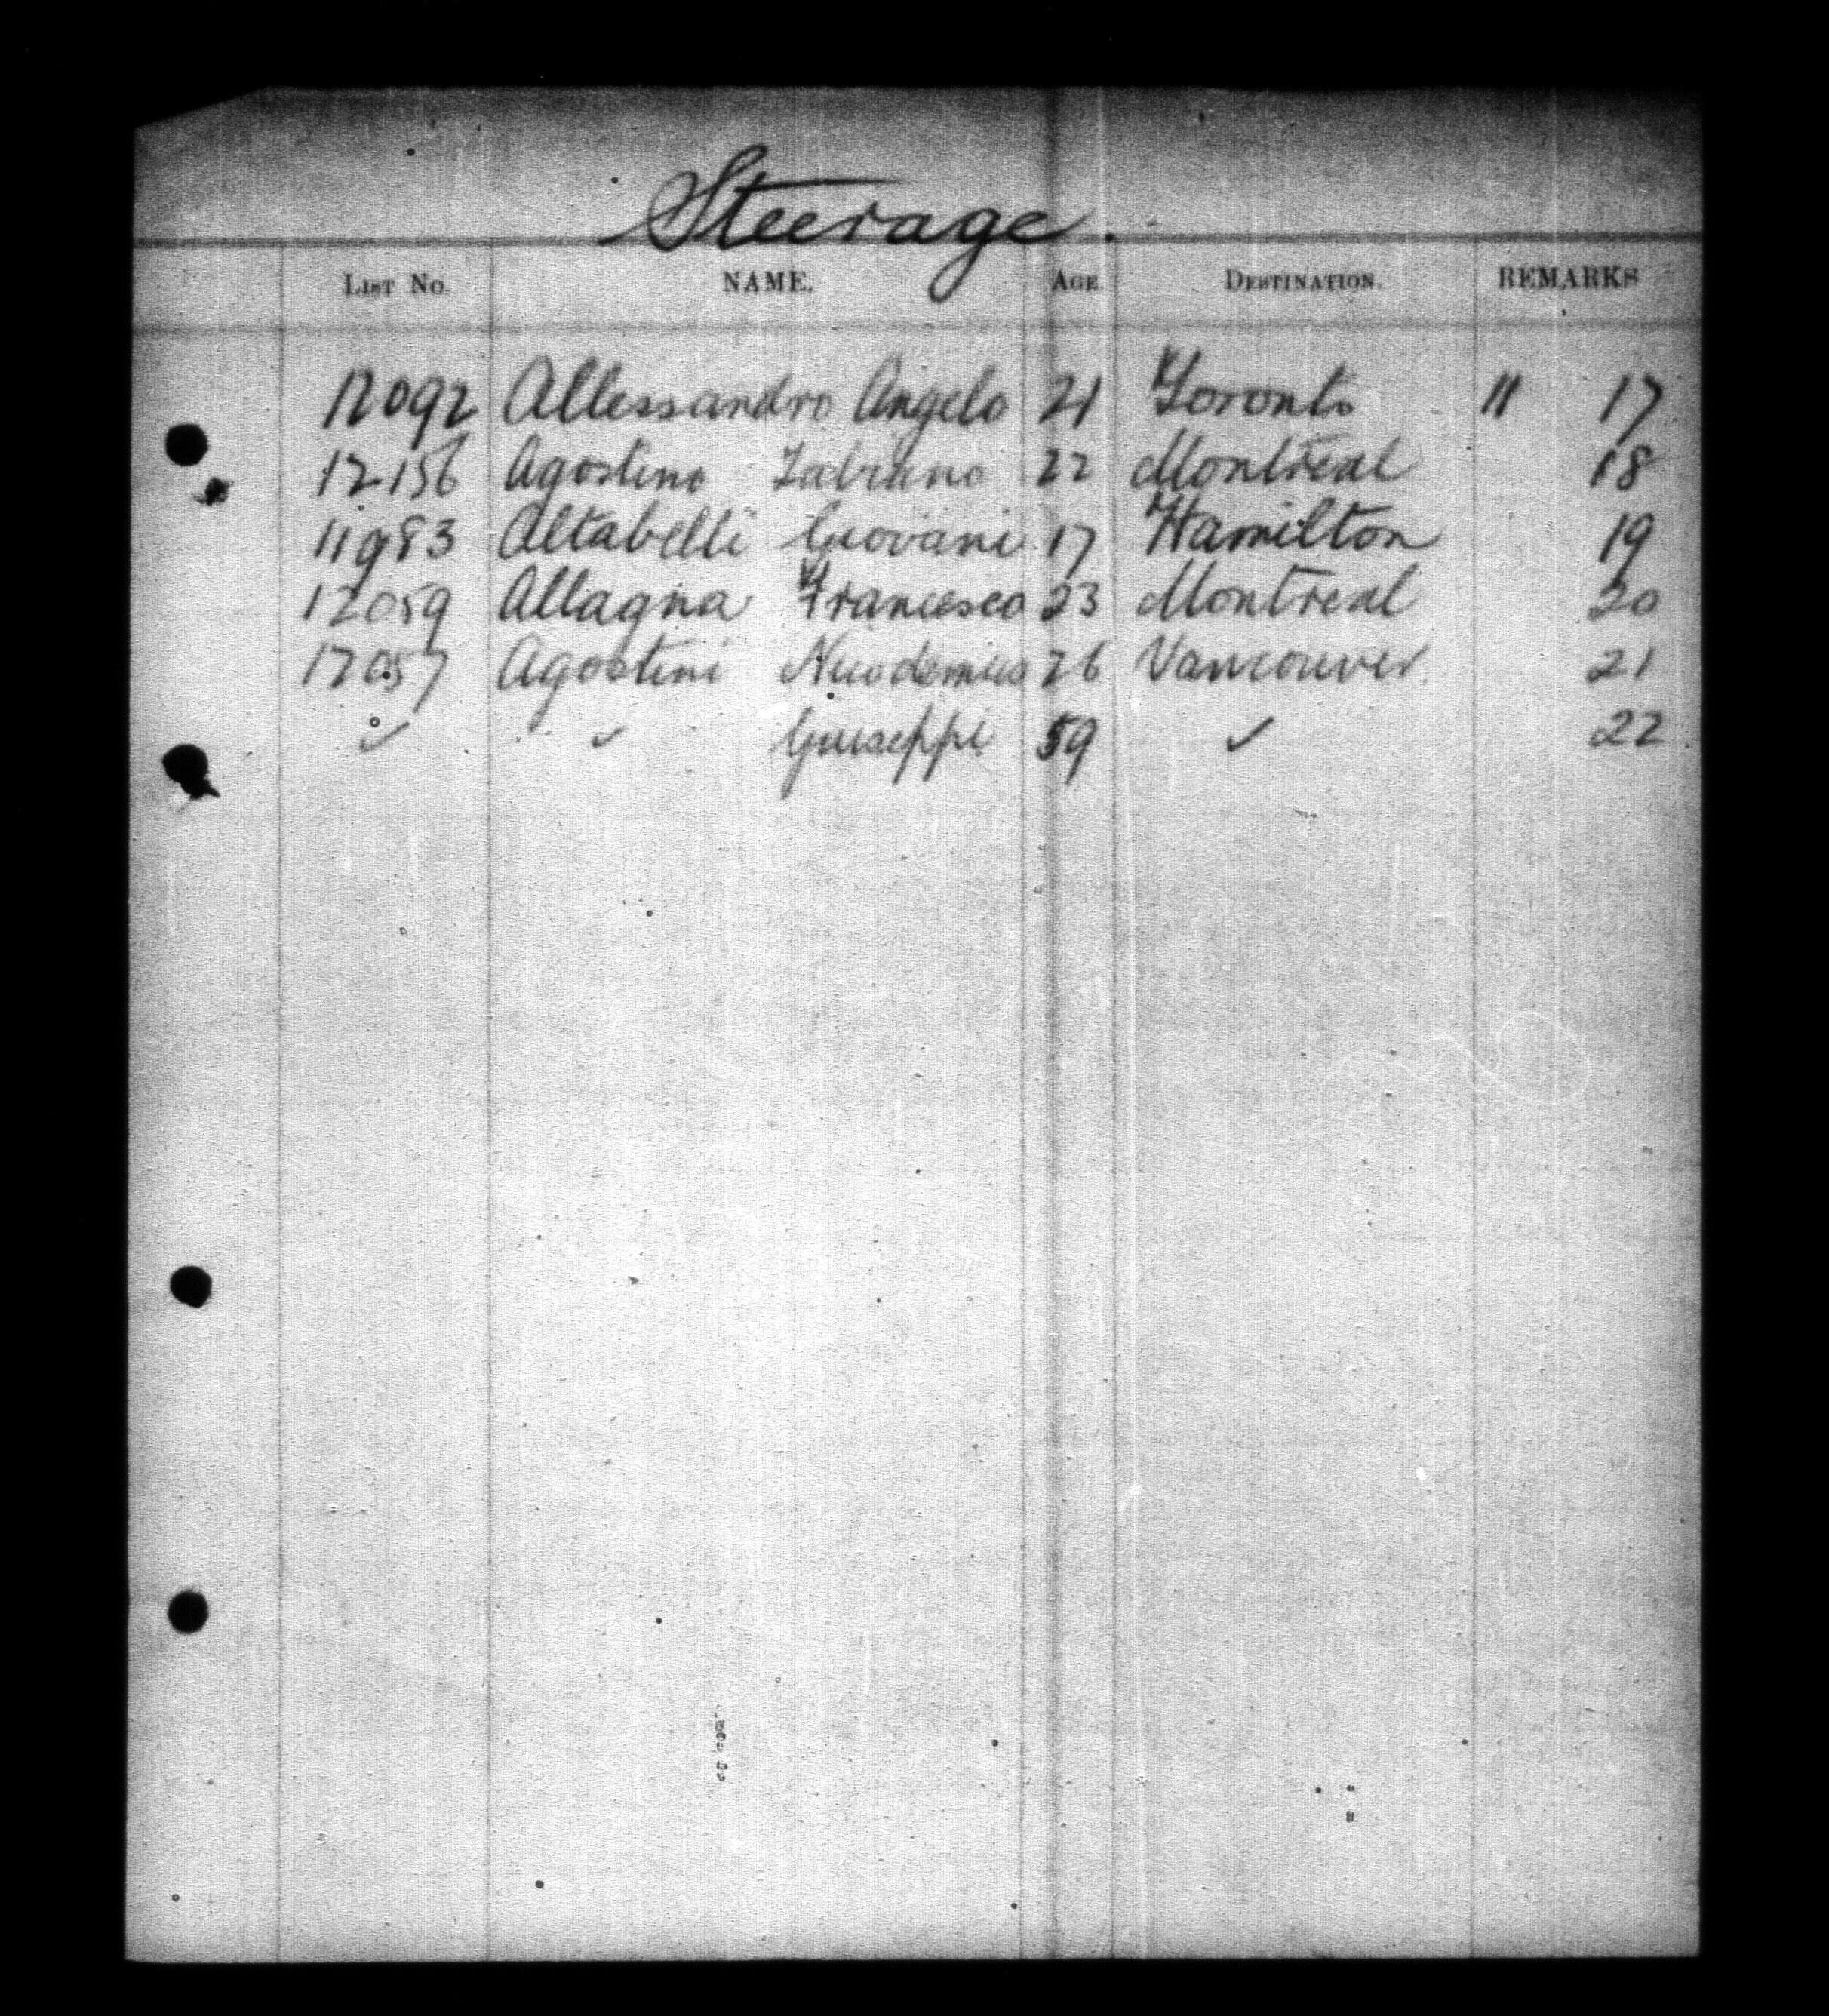 Steerage.
LIST No. NAME. AGE DESTINATION. REMARKS
12092 Allessandro Angelo 21 Toronto 11 17
12156 Agostino 22 Montreal 18
11983 Altabelli Giovani 17 Hamilton 19
12059 Allagna Francesco 23 Montreal 20
12057 Agostini Nicodemus 26 Vancouver. 21
✓ ✓ Guiseppi 59 ✓ 22